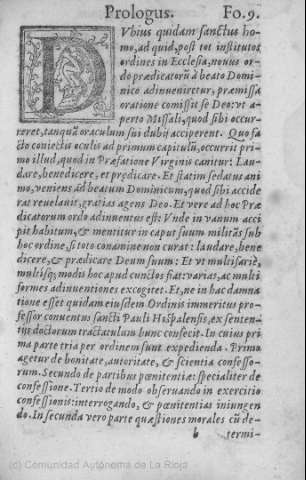 Prologus. Fo.9.
DVbius quidam sanctus ho-
mo, ad quid, post tot institutos
ordines in Ecclesia, nouus or-
do prædicatorū à beato Domi-
nico adinueniretur, præmissa
oratione comissit se Deo: vt a-
perto Missali, quod sibi occur-
reret, tanquā oraculum sui dubij acciperent. Quo fa-
cto coniectis oculis ad primum capitulū, occurrit pri-
mo illud, quod in Præfatione Virginis canitur: Lau-
dare, benedicere, et prędicare. Et statim sedatus ani
mo, veniens ad beatum Dominicum, quod sibi accide
rat reuelauit, gratias agens Deo. Et vere ad hoc Præ
dicatorum ordo adinuentus est: Vnde in vanum acci
pit habitum, & mentitur in caput suum militās sub
hoc ordine, si toto conamine non curat: laudare, bene
dicere, & prædicare Deum suum: Et vt multifariè,
multisq; modis hoc apud cunctos fiat: varias, ac multi
formes adinuentiones excogitet. Et, ne in hac damna
tione esset quidam eiusdem Ordinis immeritus pro-
fessor conuentus sancti Pauli Hispalensis, ex senten-
tijs doctorum tractatulum hunc confecit. In cuius pri
ma parte tria per ordinem sunt expedienda. Primo
agetur de bonitate, autoritate, & scientia confesso-
rum. Secundo de partibus pœnitentiæ: specialiter de
confessione. Tertio de modo obseruando in exercitio
confessionis: interrogando, & pœnitentias iniungen
do. In secunda vero parte quæstiones morales cū de-
b termi-
(c) Comunidad Autónoma de La Rioja